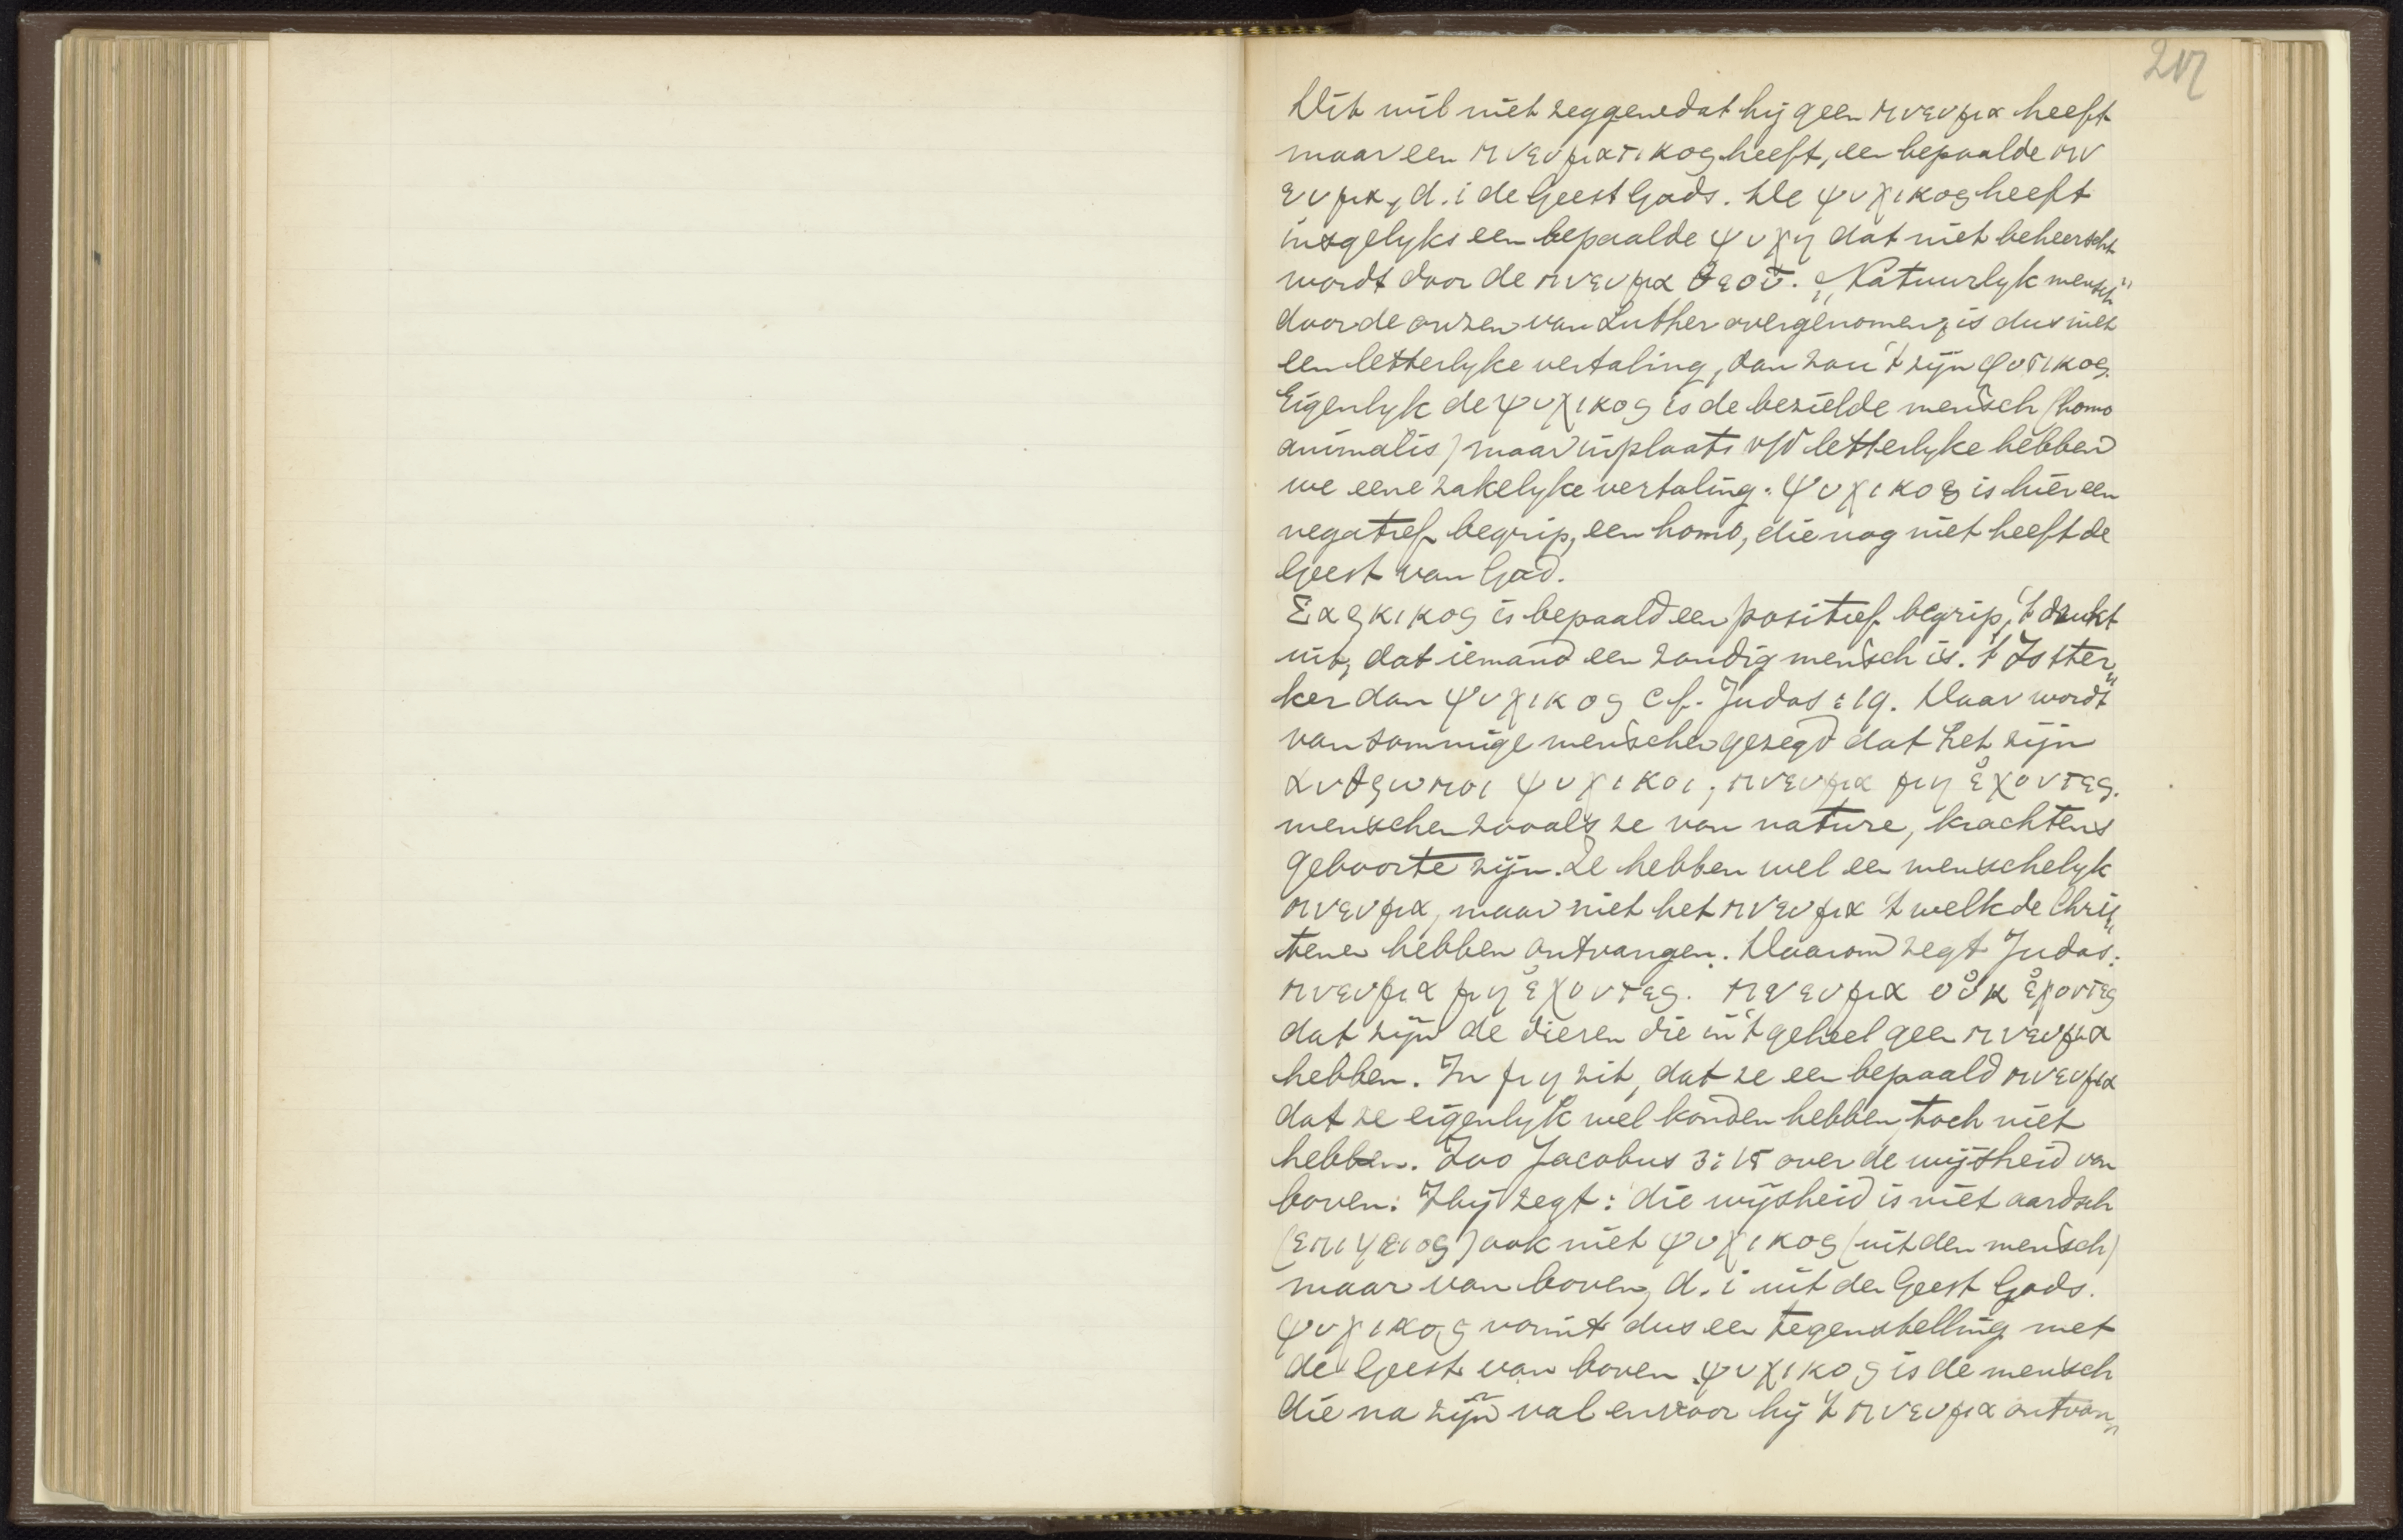 217
Dit wil niet zeggen dat hij geen πνευμα heeft
maar een πνευματικος heeft, een bepaalde πν
ευμα, d. i de Geest Gods. De ψυχικος heeft
insgelyks een bepaalde ψυχη dat niet beheerscht
wordt door de πνευμα θεου. „Natuurlyk mensch"
door de onzen van Luther overgenomen, is dus niet
een letterlyke vertaling, dan zou 't zijn φυσικος.
Eigenlyk de ψυχικος is de bezielde mensch (homo
animalis) maar inplaats v/d letterlyke hebben
we eene zakelyke vertaling. ψυχικος is hier een
negatief begrip, een homo, die nog niet heeft de
Geest van God.
Σαρκικος is bepaald een positief begrip, 't drukt
uit, dat iemand een zondig mensch is. 't Is ster„
ker dan ψυχικος cf. Judas : 19. Daar wordt
van sommige menschen gezegd dat het zijn
ανθρωποι ψυχικοι, πνευμα μη ἐχοντες.
menschen zooals ze van nature, krachtens
geboorte zijn. Ze hebben wel een menschelyk
πνευμα, maar niet het πνευμα 't welk de Chris„
tenen hebben ontvangen. Daarom zegt Judas:
πνευμα μη ἐχοντες. πνευμα οὐκ ἐχοντες
dat zijn de dieren die in 't geheel geen πνευμα
hebben. In μη zit, dat ze een bepaald πνευμα
dat ze eigenlyk wel konden hebben toch niet
hebben. Zoo Jacobus 3:15 over de wijsheid van
boven. Hij zegt: die wijsheid is niet aardsch
(επιγειος) ook niet ψυχικος (uit den mensch)
maar van boven, d. i uit den Geest Gods.
ψυχικος vormt dus een tegenstelling met
de Geest van boven. ψυχικος is de mensch
die na zijn val en voor hij 't πνευμα ontvan„